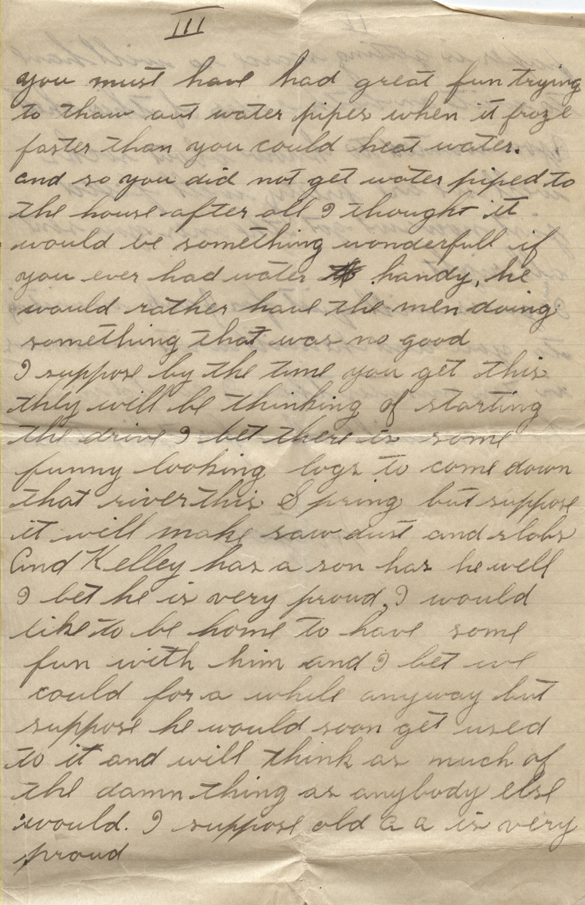 III
you must have had great fun trying
to thaw out water pipes when it froze
faster than you could heat water.
and so you did not get water piped to
the house after all I thought it
would be something wonderfull if
you ever had water handy, he
would rather have the men doing
something that was no good
I suppose by the time you get this
they will be thinking of starting
the drive I bet there is some
funny looking logs to come down
that river this Spring but suppose
it will make saw dust and slabs
And Kelley has a son has he well
I bet he is very proud, I would
like to be home to have some
fun with him and I bet we
could for a while anyway but
suppose he would soon get used
to it and will think as much of
the damn thing as anybody else
would. I suppose old a a is very
proud